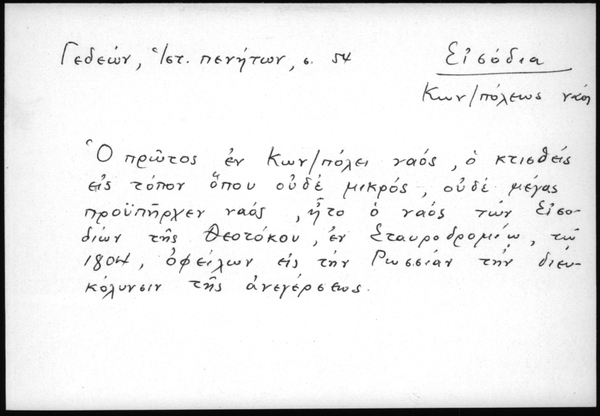 Γεδεών, Ἱστ. πενήτων, σ. 54
Εἰσόδια
Κων/πόλεως ναός
Ὁ πρῶτος ἐν Κων/πόλει ναός, ὁ κτισθείς
εἰς τόπον ὅπου οὐδέ μικρός, οὐδέ μέγας
προϋπῆρχεν ναός, ἦτο ὁ ναός τῶν Εἰσο-
δίων τῆς Θεοτόκου, ἐν Σταυροδρομίῳ, τῷ
1804, ὀφείλων εἰς τήν Ρωσσίαν τήν διευ-
κόλυνσιν τῆς ἀνεγέρσεως.